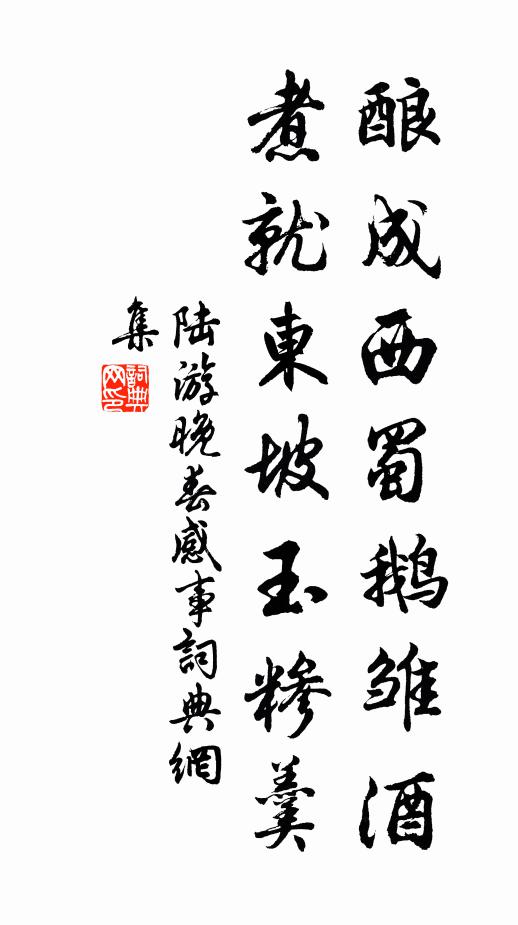 酿成西蜀鹅雏酒
煮就東坡玉糁羹
陆游晚春感事詞典網
集
詞典
网印